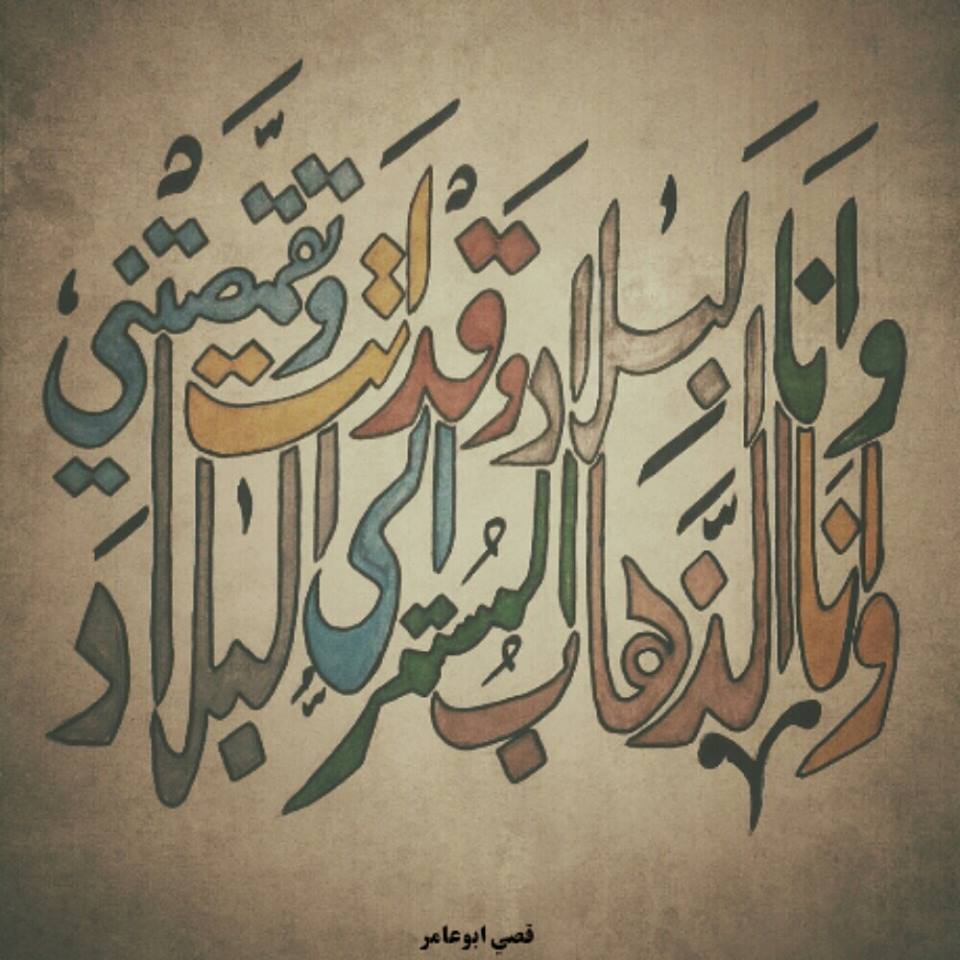 وانا البلاد وقد اتت وتقمصتني
وانا الذهاب المستمر الى البلاد
قصي ابوعامر